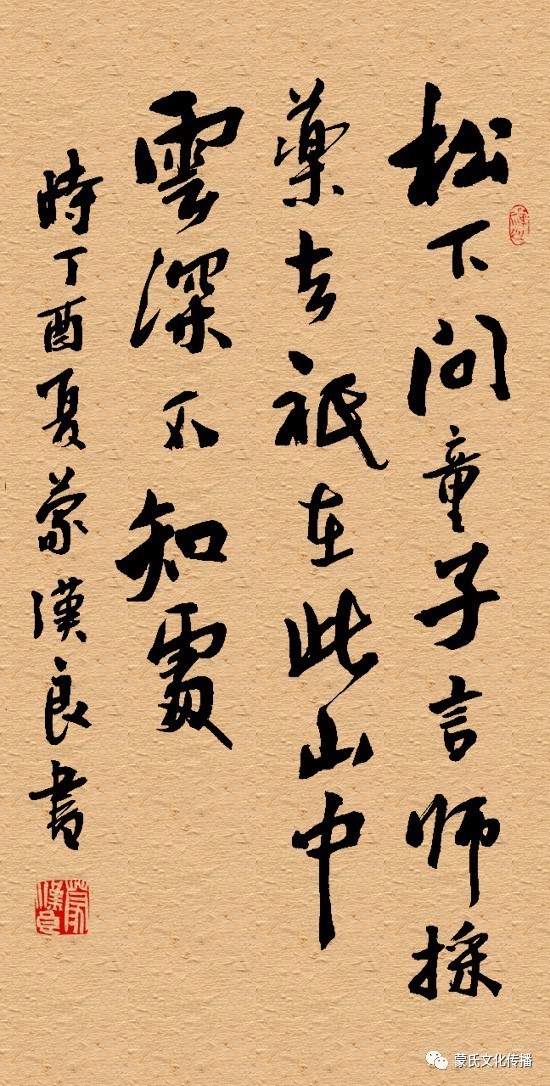 松下问童子言师採
藥去祇在此山中
雲深不知處
時丁酉夏蒙漢良書
蒙氏文化传播